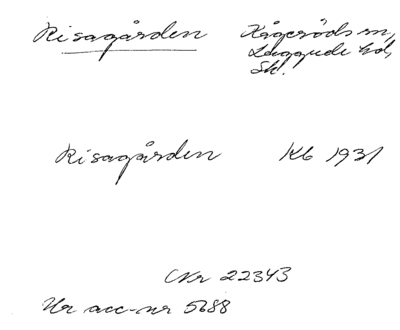 Risagården Kågeröds sn,
Luggude hd,
Sk.
Risagården Kb 1931
Nr 22343
Ur acc-nr 5688